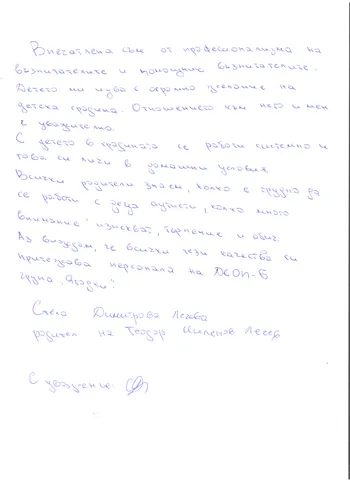 Впечатлена съм от професионализма на
възпитателите и помощник възпитателите.
Детето ми идва с огромно желание на
детска градина. Отношението към него и мен
е уважително.
С детето в градината се работи системно и
това си личи в домашни условия.
Всички родители знаем, колко е трудно да
се работи с деца аутисти, колко много
внимание изискват, търпение и обич.
Аз виждам, че всички тези качества си
притежава персонала на ДСОП-Б
група „Ягодки".
Стела Димитрова Лечева
родител на Теодор Миленов Лечев
С уважение: